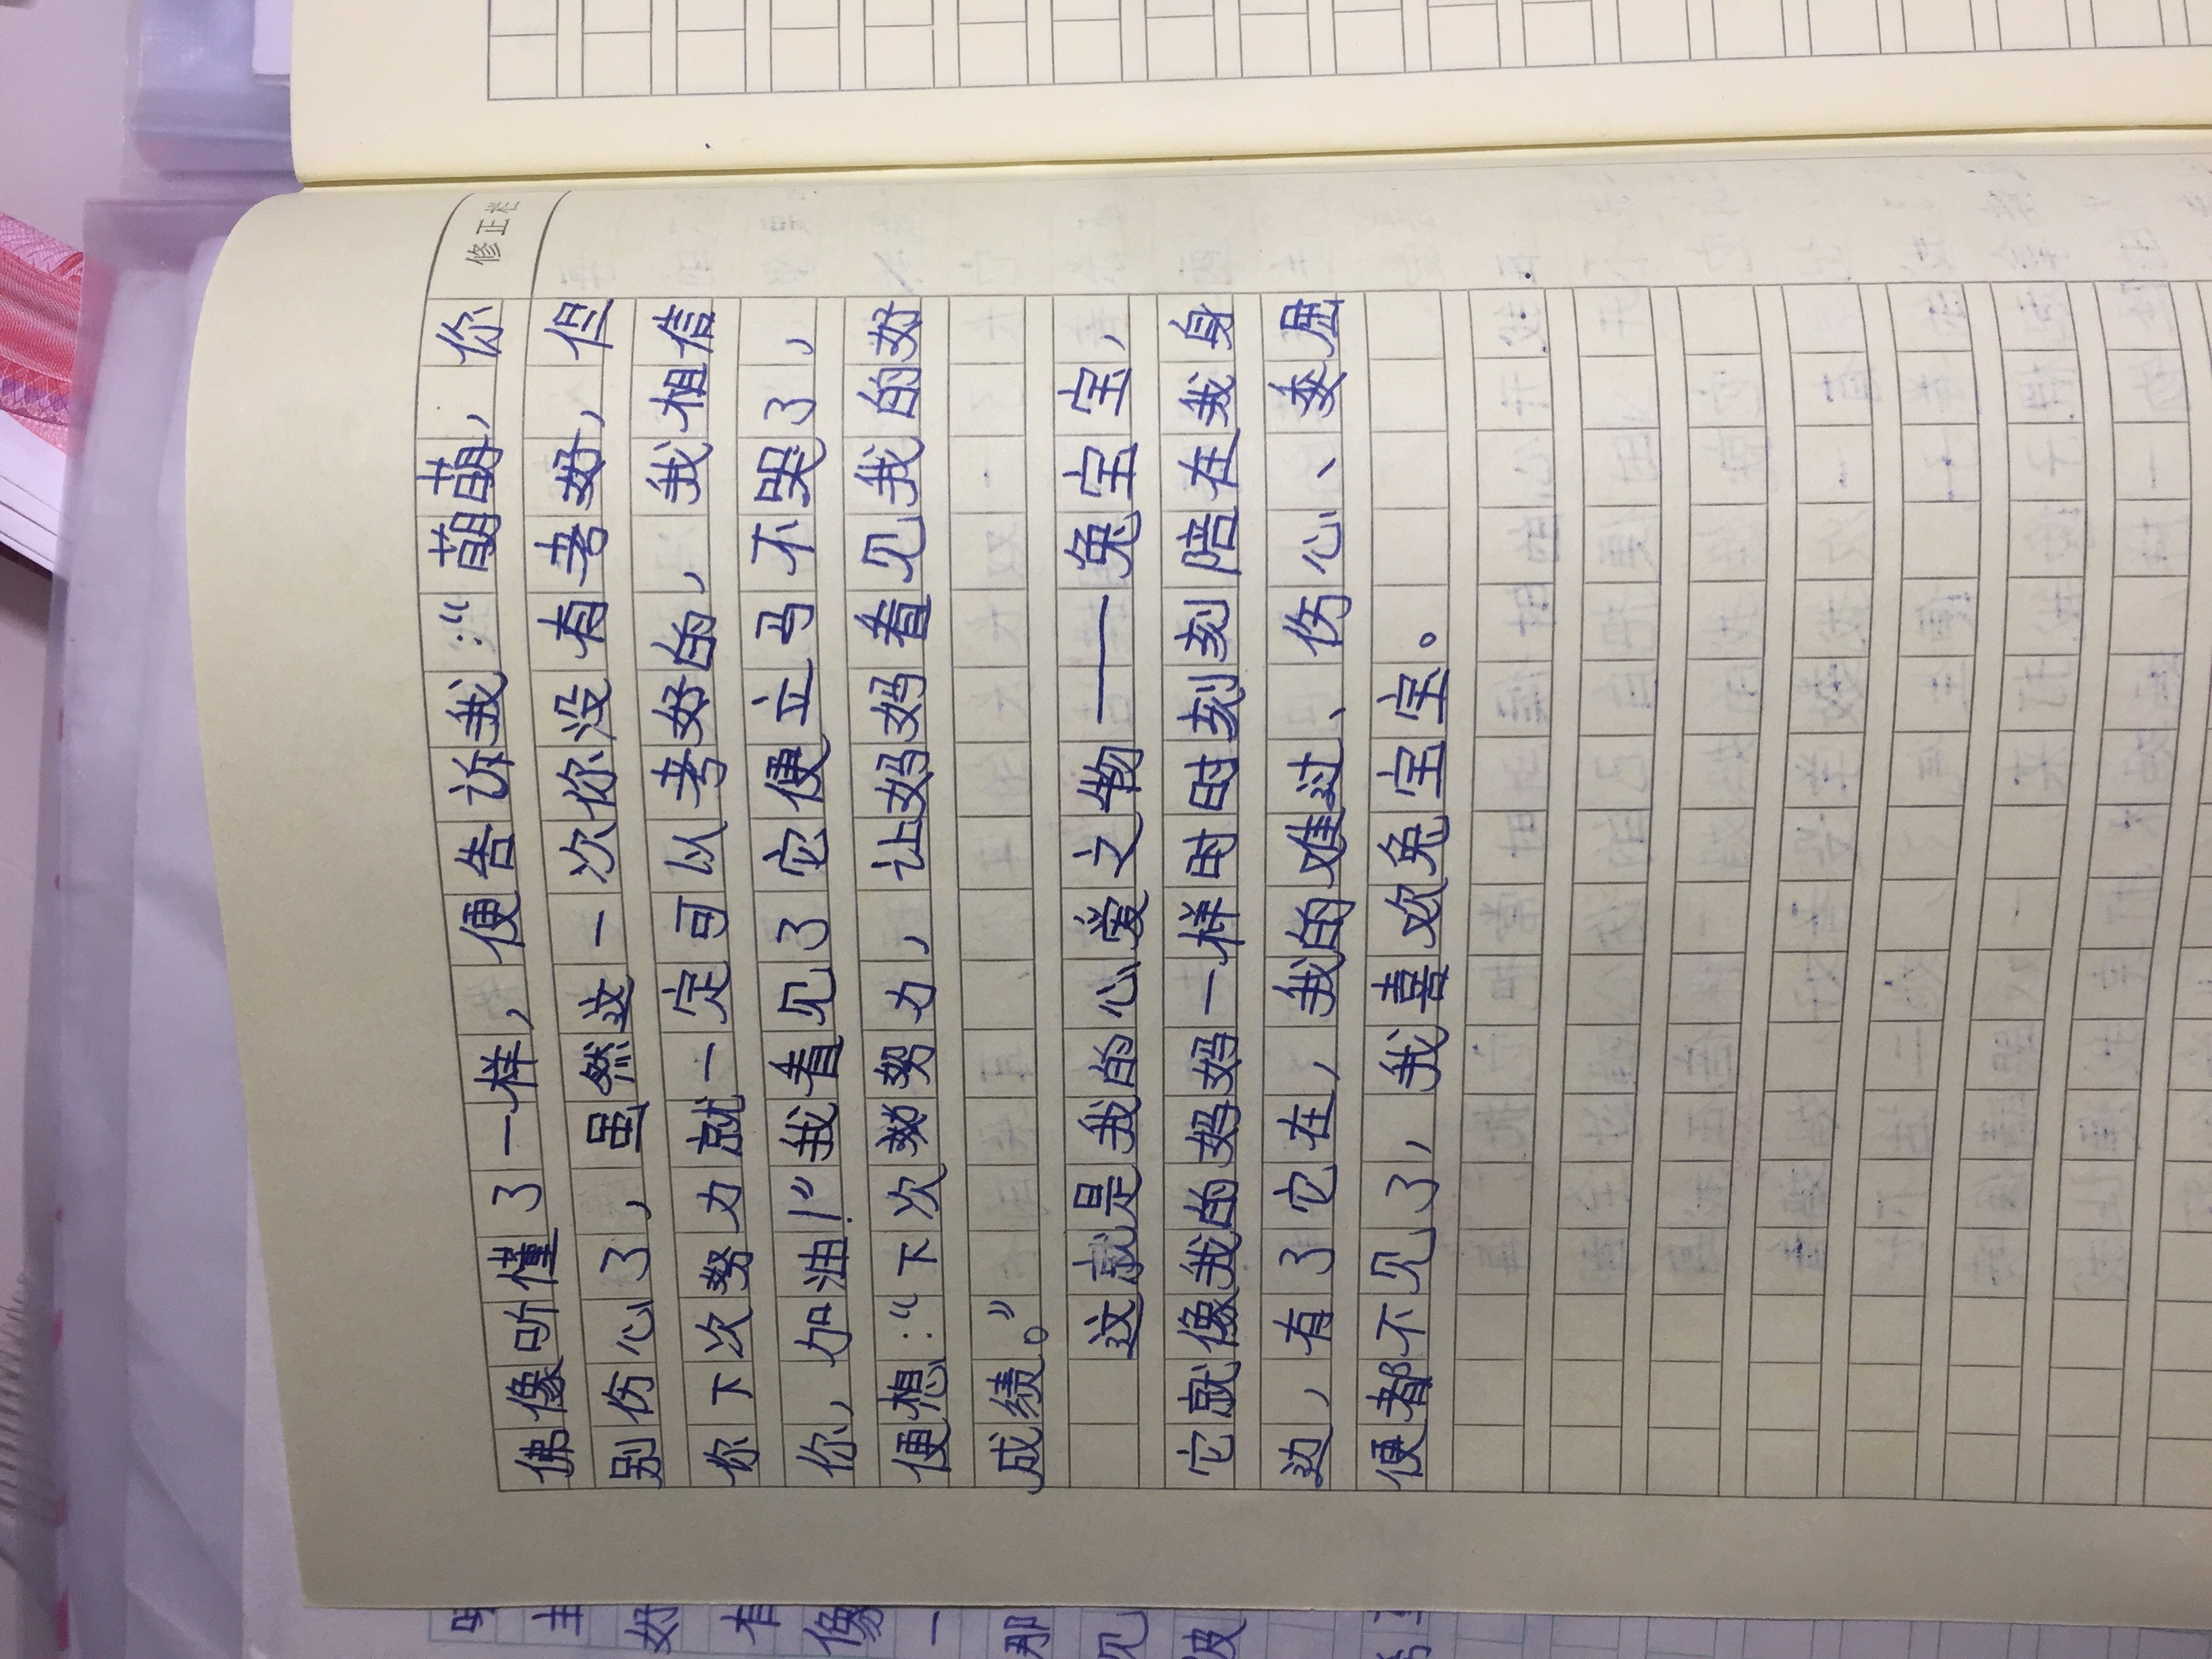 修正栏
佛像听懂了一样，便告诉我：“萌萌，你
别伤心了，虽然这一次你没有考好，但
你下次努力就一定可以考好的，我相信
你，加油！”我看见了它便立马不哭了，
便想：“下次努努力，让妈妈看见我的好
成绩。”
这就是我的心爱之物——兔宝宝，
它就像我的妈妈一样时时刻刻陪在我身
边，有了它在，我的难过、伤心、委屈
便都不见了，我喜欢兔宝宝。